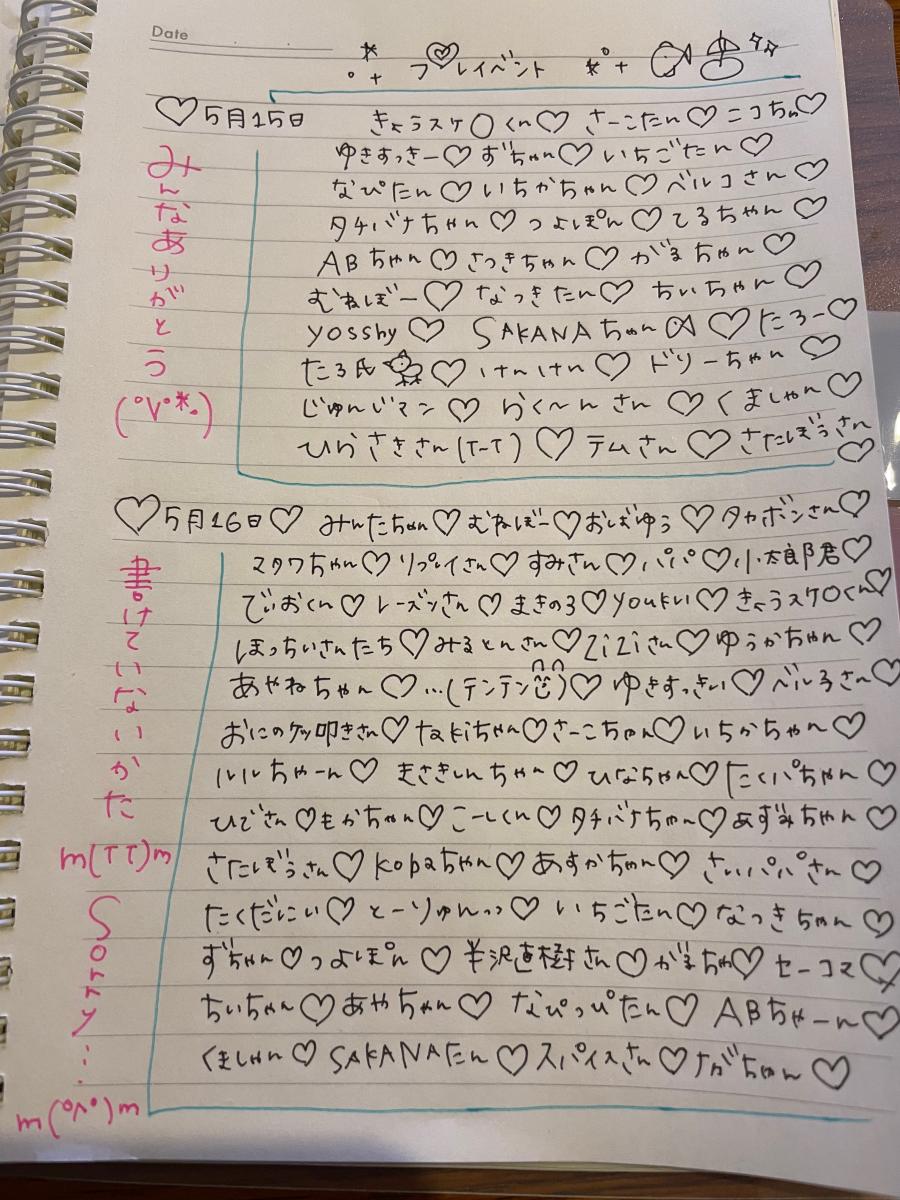 Date
プレイベント
♡5月15日 きょうスケ〇くん♡ さーこたん♡ ニコちゃん♡
ゆきすっきー♡ ずちゃん♡ いちごたん♡
なぴたん♡ いちかちゃん♡ ベルコさん♡
タチバナちゃん♡ つよぽん♡ てるちゃん♡
ABちゃん♡ さつきちゃん♡ がまちゃん♡
むねしぼー♡ なつきたん♡ ちぃちゃん♡
yosshy♡ SAKANAちゃん♡ たろー♡
たろ氏♡ けんけん♡ ドリーちゃん♡
じゅんじマン♡ らく〜んさん♡ くましゃん♡
ひらさきさん(T-T)♡ テムさん♡ さたぼうさん♡
みんなありがとう
(°V°*)
♡5月16日♡ みんたちゃん♡むねしぼー♡おばゆう♡タカボンさん♡
マタワちゃん♡リプレイさん♡すみさん♡パパ♡小太郎君♡
でぃおくん♡レーズンさん♡まきのろ♡youkい♡きょうスケ〇くん♡
ぼっちぃさんたち♡みるとんさん♡ZiZiさん♡ゆうかちゃん♡
あやねちゃん♡…(テンテン)♡ゆきすっきぃ♡ベルろさん♡
おにのケツ叩きさん♡takiちゃん♡さーこちゃん♡いちかちゃん♡
ルルちゃーん♡ まさきしんちゃん♡ひなちゃん♡たくパちゃん♡
ひでさん♡もかちゃん♡こーしくん♡タチバナちゃん♡あずみちゃん♡
さたぼうさん♡kopaちゃん♡あすかちゃん♡さいパパさん♡
たくだにぃ♡とーりゅんっっ♡いちごたん♡なつきちゃん♡
ずちゃん♡つよぽん♡半沢直樹さん♡がまちゃ♡セーコマ♡
ちぃちゃん♡あやちゃん♡なぴっぴたん♡ABちゃーん♡
くましゃん♡SAKANAたん♡スパイスさん♡ナガちゃん♡
書けていないかた
m(TT)m
Sorry...
m(°v°)m